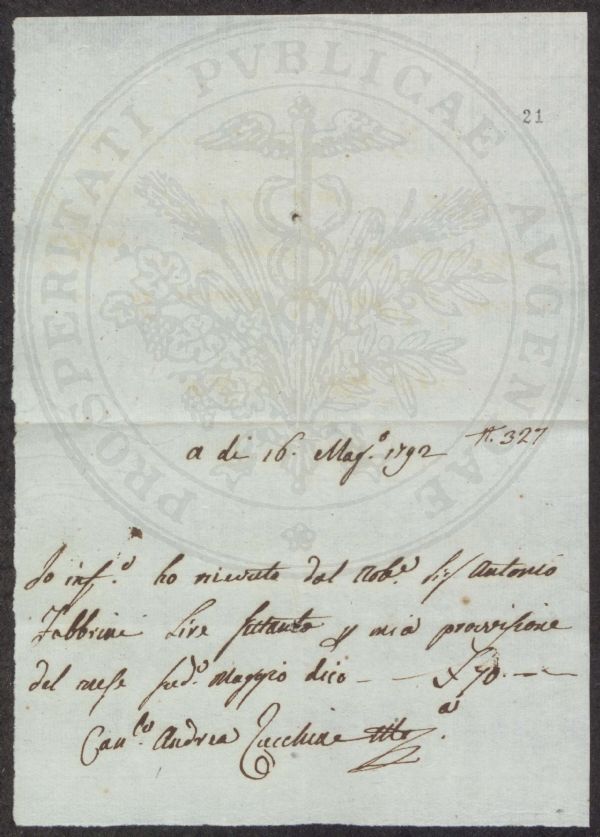 21
PROSPERITATI PVBLICAE AVGENDAE
a di 16. Mag.º 1792 N. 327
Io inf.º ho ricevuto dal Nob.e Sig Antonio
Fabbrini Lire settanta p mia provvisione
del mese sud.º Maggio dico — £ 70. —
Can.co Andrea Zucchini